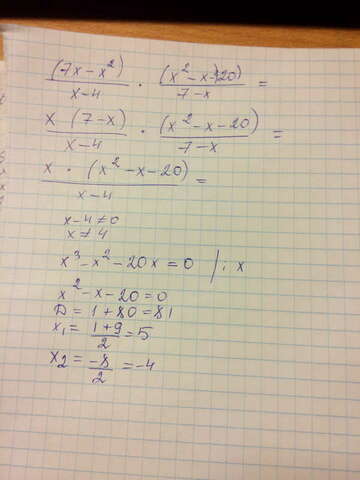 (7x-x²)/(x-4) · (x²-x-20)/(7-x) =
x (7-x)/(x-4) · (x²-x-20)/(7-x) =
x · (x²-x-20)/(x-4) =
x-4≠0
x≠4
x³-x²-20x=0 /: x
x²-x-20=0
D=1+80=81
x₁=(1+9)/2=5
x₂=-8/2=-4